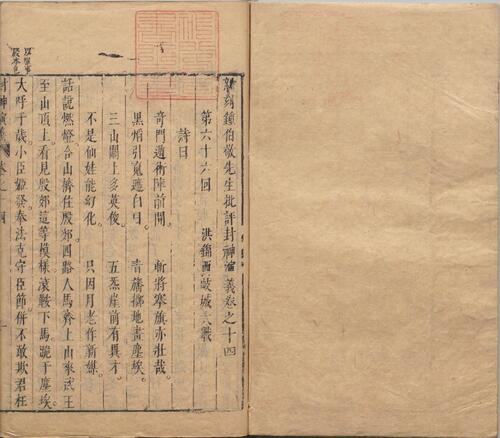 新刻鍾伯敬先生批評封神演義卷之十四
第六十六回　洪錦西岐城大戰
詩曰
奇門遁術陣前開　斬將搴旗亦壯哉
黑焰引魂遮白日　青旛擲地畫塵埃
三山關上多英俊　五炁崖前有異才
不是仙姓能幻化　只因月老作新媒
話說燃燈合山擠住殷郊四路人馬齊上山來武王
至山頂上看見殷郊這等模樣滾鞍下馬跪于塵埃
大呼千歲小臣姬發奉法克守臣節併不敢欺君枉
封神演義　卷之十四